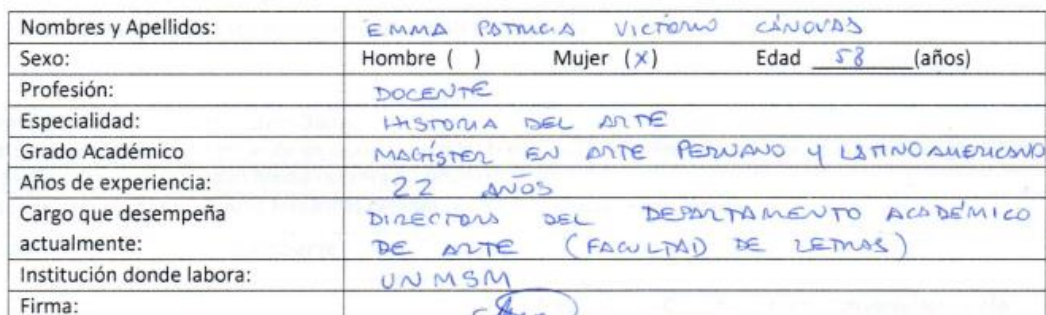 Nombres y Apellidos: EMMA PATRICIA VICTORIO CÁNOVAS
Sexo: Hombre ( ) Mujer (X) Edad 58 (años)
Profesión: DOCENTE
Especialidad: HISTORIA DEL ARTE
Grado Académico MAGÍSTER EN ARTE PERUANO Y LATINOAMERICANO
Años de experiencia: 22 AÑOS
Cargo que desempeña DIRECTORA DEL DEPARTAMENTO ACADÉMICO
actualmente: DE ARTE (FACULTAD DE LETRAS)
Institución donde labora: UNMSM
Firma: